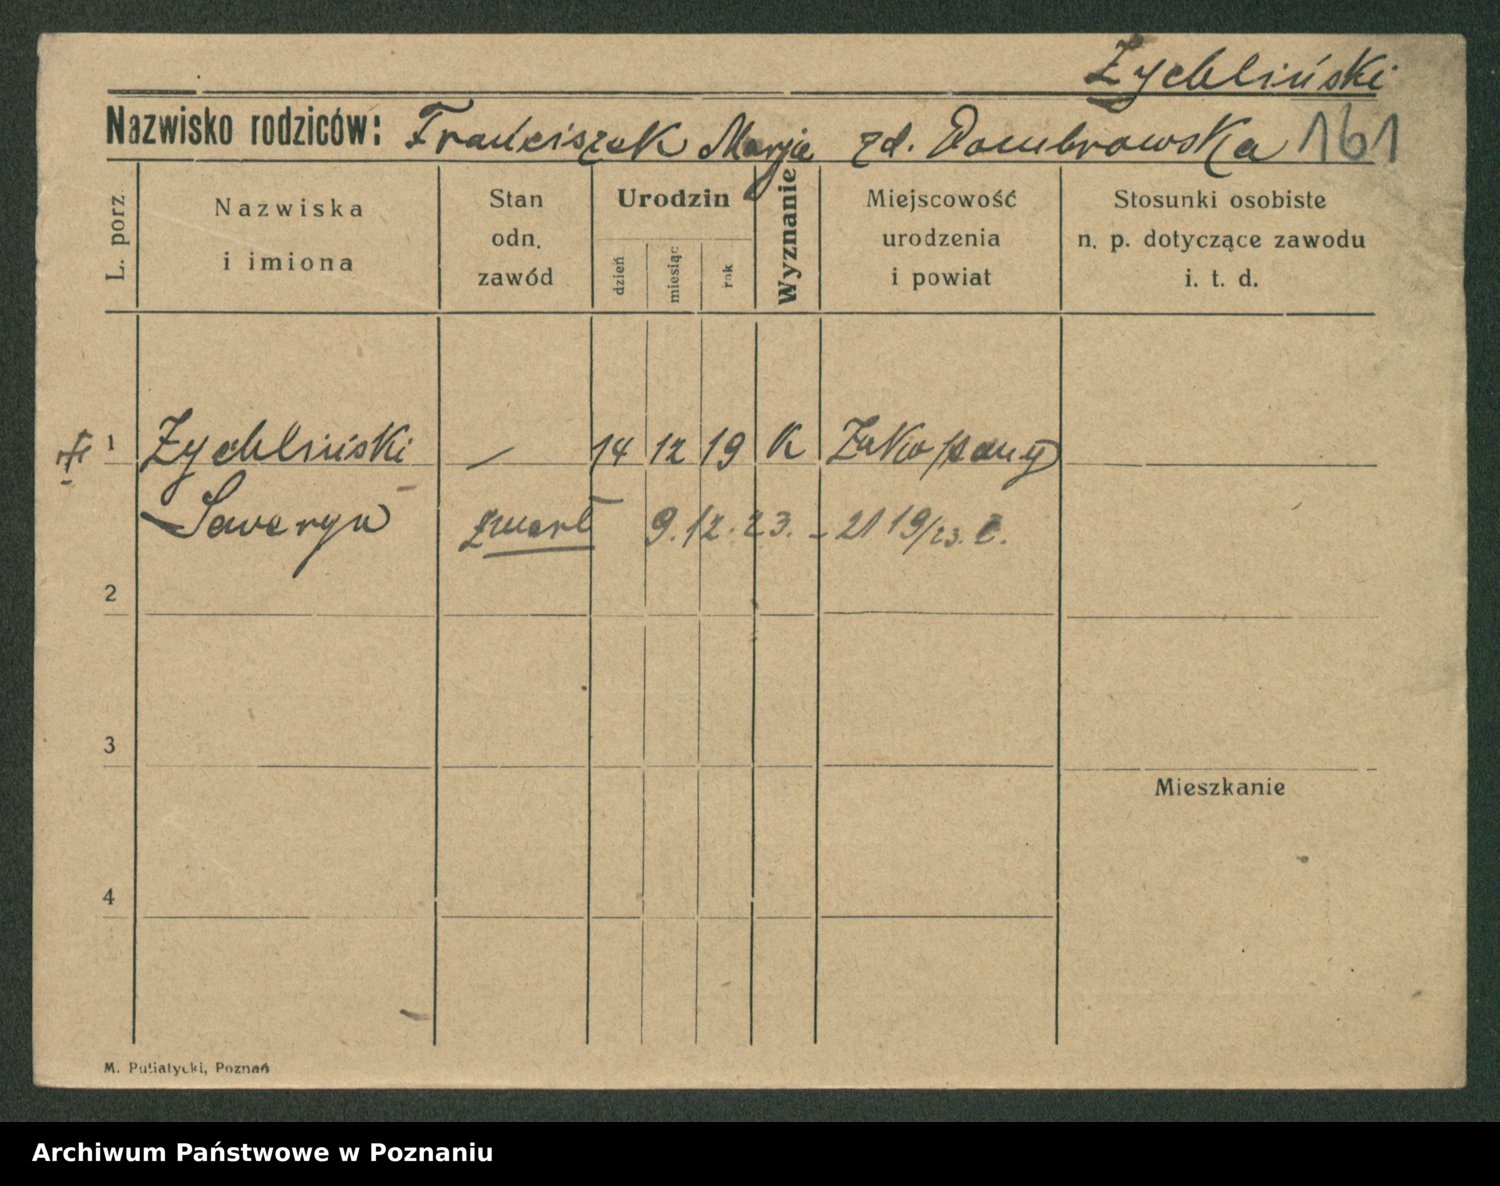 Żychliński
Nazwisko rodziców: Franciszek Marja zd. Dombrowska 161
L. porz
Nazwiska
i imiona
Stan
odn.
zawód
Urodzin
dzień
miesiąc
rok
Wyznanie
Miejscowość
urodzenia
i powiat
Stosunki osobiste
n. p. dotyczące zawodu
i. t. d.
1 Żychliński — 14 12 19 K Zakopany
Seweryn zmarł 9.12.23. - 21 19/23.
2
3
Mieszkanie
4
M. Putiatycki, Poznań
Archiwum Państwowe w Poznaniu